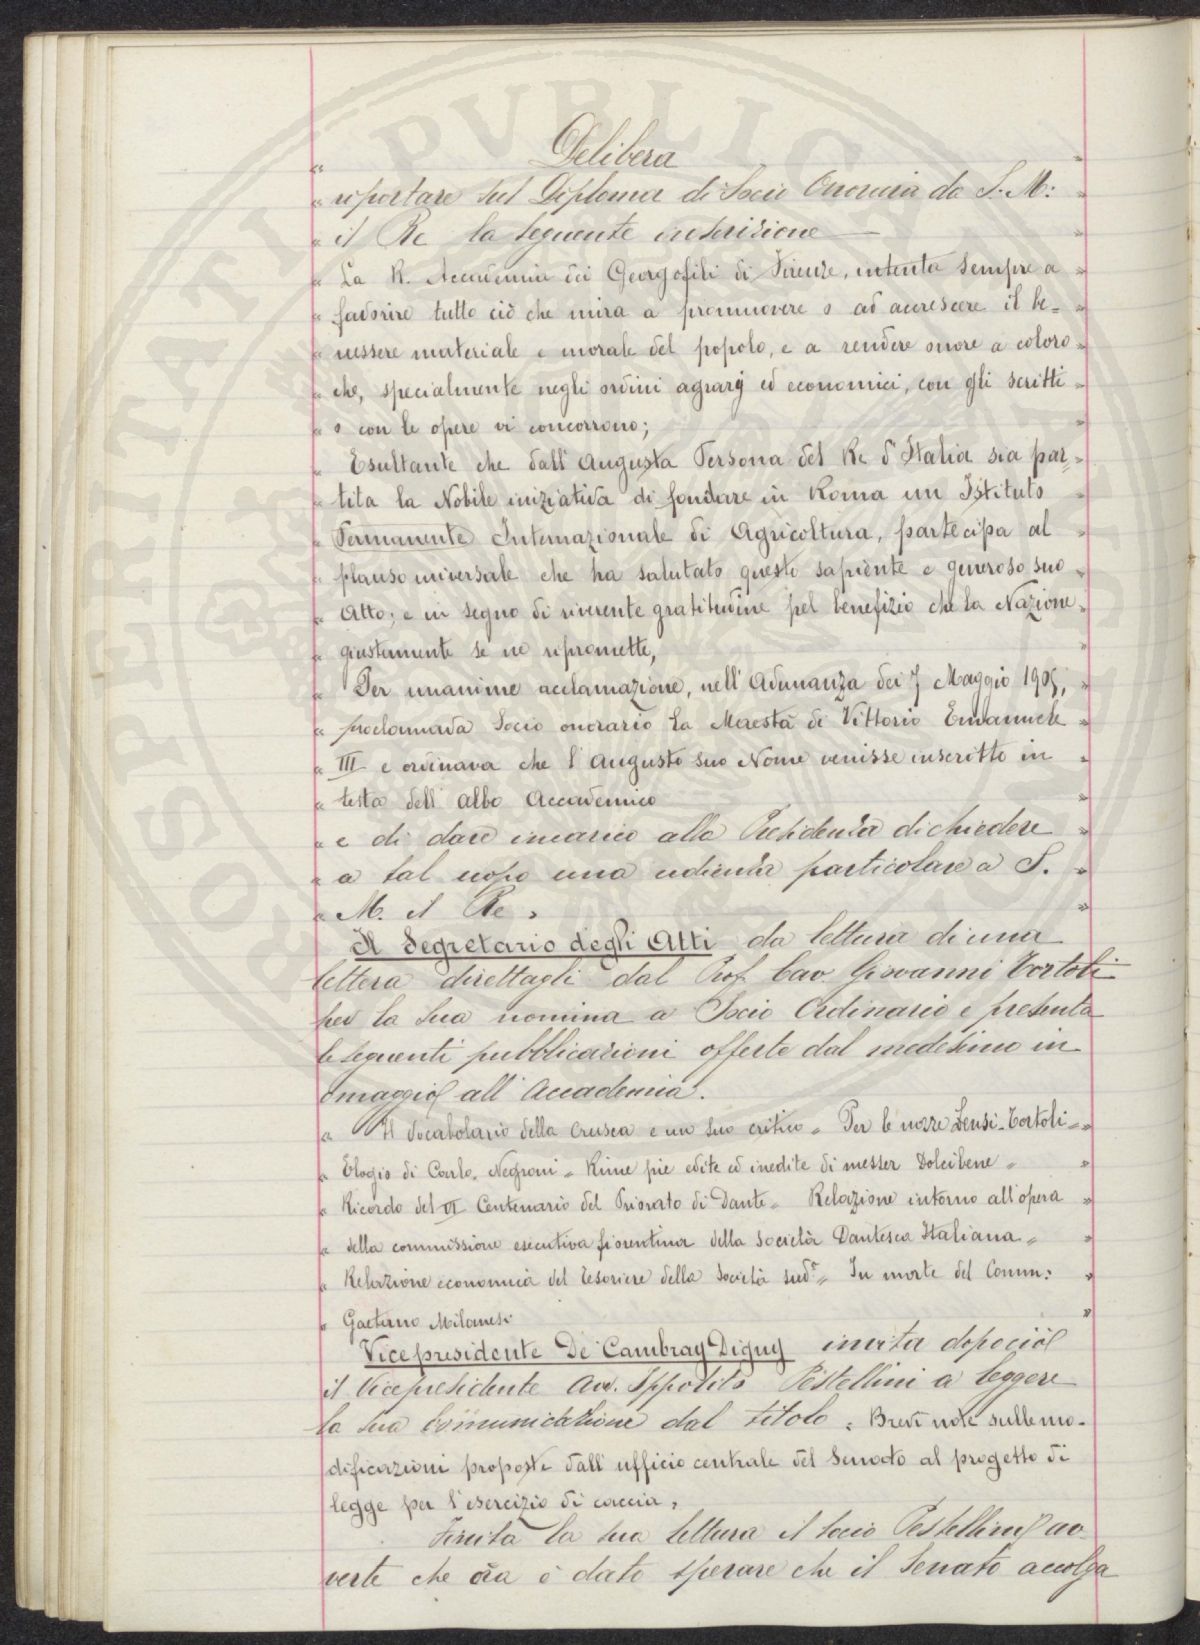 Delibera
« riportare sul Diploma di Socio Onorario da S. M: »
« il Re la seguente inscrizione — »
« La R. Accademia dei Georgofili di Firenze, intenta sempre a »
« favorire tutto ciò che mira a promuovere o ad accrescere il be- »
« nessere materiale e morale del popolo, e a rendere onore a coloro »
« che, specialmente negli ordini agrarj ed economici, con gli scritti »
« o con le opere vi concorrono; »
« Esultante che dall'Augusta Persona del Re d'Italia sia par- »
« tita la Nobile iniziativa di fondare in Roma un Istituto »
« Permanente Internazionale di Agricoltura, partecipa al »
« plauso universale che ha salutato questo sapiente e generoso suo »
« Atto; e in segno di riverente gratitudine pel benefizio che la Nazione »
« giustamente se ne ripromette, »
« Per unanime acclamazione, nell'Adunanza dei 7 Maggio 1905, »
« proclamava Socio onorario La Maestà di Vittorio Emanuele »
« III e ordinava che l'augusto suo Nome venisse inscritto in »
« testa dell'albo Accademico »
« e di dare incarico alla Presidenza di chiedere »
« a tal uopo una udienza particolare a S. »
« M. il Re. »
Il Segretario degli Atti da lettura di una
lettera direttagli dal Prof. Cav. Giovanni Tortoli
per la sua nomina a Socio Ordinario e presenta
le seguenti pubblicazioni offerte dal medesimo in
omaggio all'Accademia.
« Il Vocabolario della Crusca e un suo critico = Per le nozze Zensi-Tortoli = »
« Elogio di Carlo Negroni = Rime pie edite ed inedite di messer Dolcibene = »
« Ricordo del VI Centenario del Priorato di Dante = Relazione intorno all'opera »
« della commissione esecutiva fiorentina della Società Dantesca Italiana = »
« Relazione economica del Tesoriere della Società sudª = In morte del Comm: »
« Gaetano Milanesi »
Vicepresidente De Cambray Digny invita dopociò
il Vicepresidente Avv. Ippolito Pestellini a leggere
la sua comunicazione dal titolo: Brevi note sulle mo-
dificazioni proposte dall'ufficio centrale del Senato al progetto di
legge per l'esercizio di caccia.
Finita la sua lettura il socio Pestellini av
verte che ora è dato sperare che il Senato accolga
SOSPERITATI PVBLICA